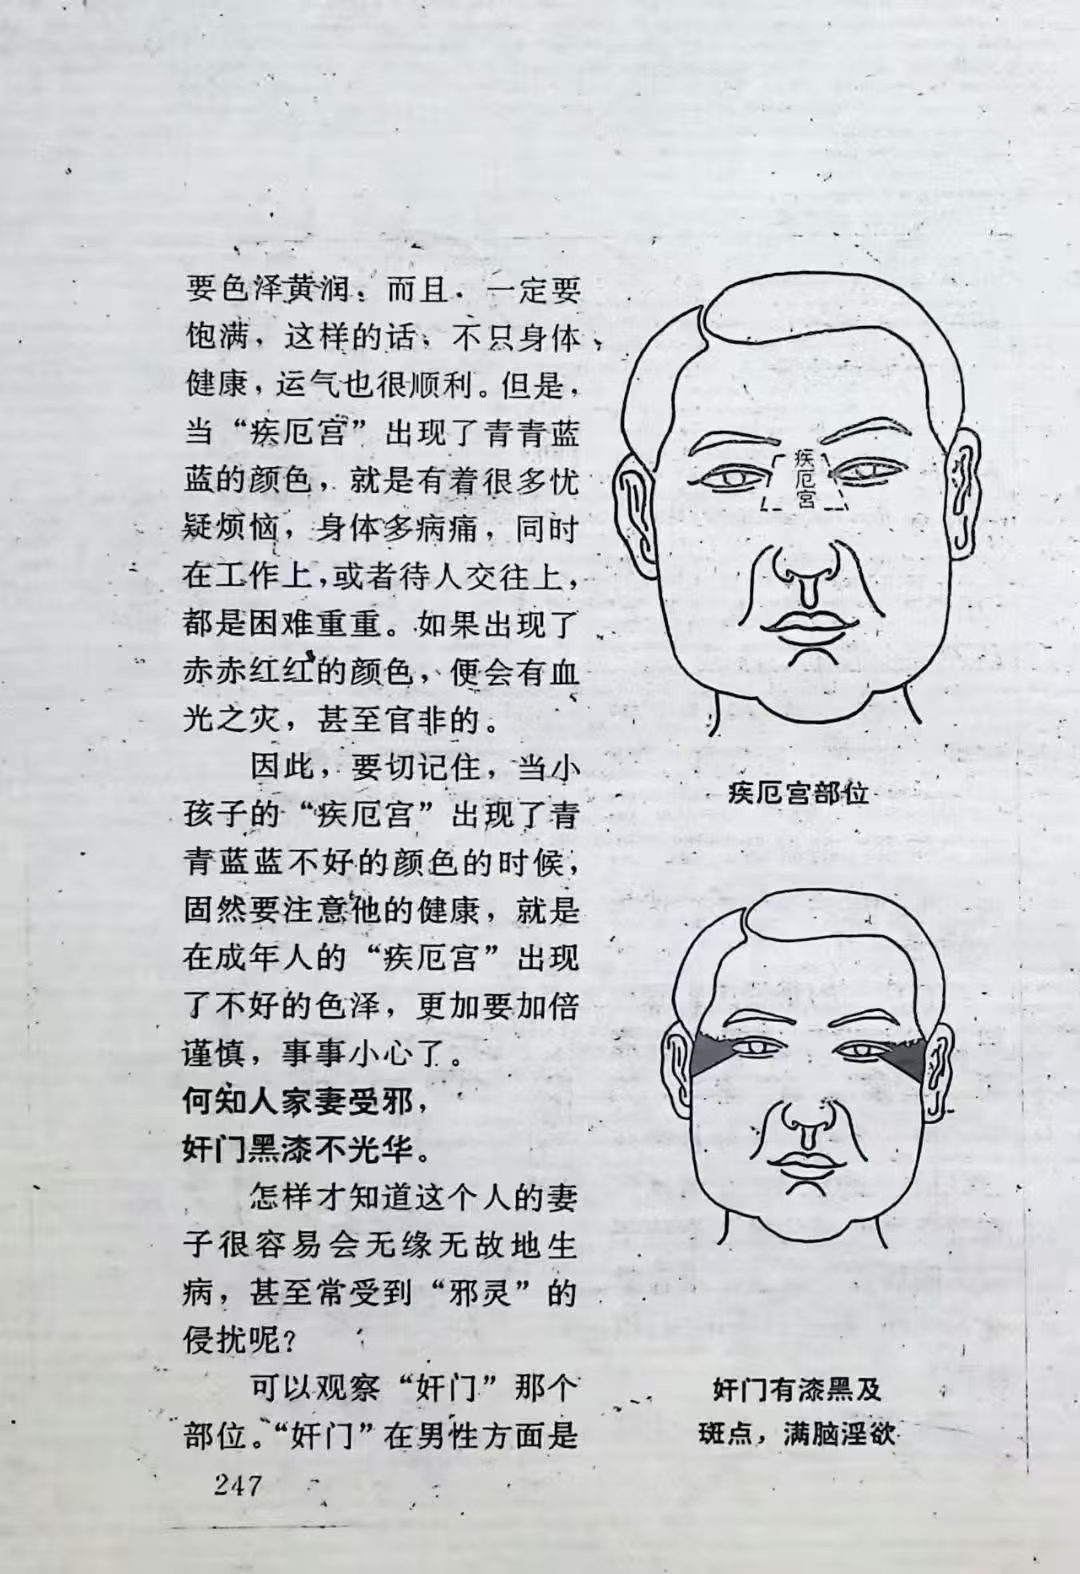 要色泽黄润；而且，一定要
饱满，这样的话，不只身体
健康，运气也很顺利。但是，
当“疾厄宫”出现了青青蓝
蓝的颜色，就是有着很多忧
疑烦恼，身体多病痛，同时
在工作上，或者待人交往上，
都是困难重重。如果出现了
赤赤红红的颜色，便会有血
光之灾，甚至官非的。
因此，要切记住，当小
孩子的“疾厄宫”出现了青
青蓝蓝不好的颜色的时候，
固然要注意他的健康，就是
在成年人的“疾厄宫”出现
了不好的色泽，更加要加倍
谨慎，事事小心了。
何知人家妻受邪，
奸门黑漆不光华。
怎样才知道这个人的妻
子很容易会无缘无故地生
病，甚至常受到“邪灵”的
侵扰呢？
可以观察“奸门”那个
部位。“奸门”在男性方面是
247
疾厄宮
疾厄宫部位
奸门有漆黑及
斑点，满脑淫欲